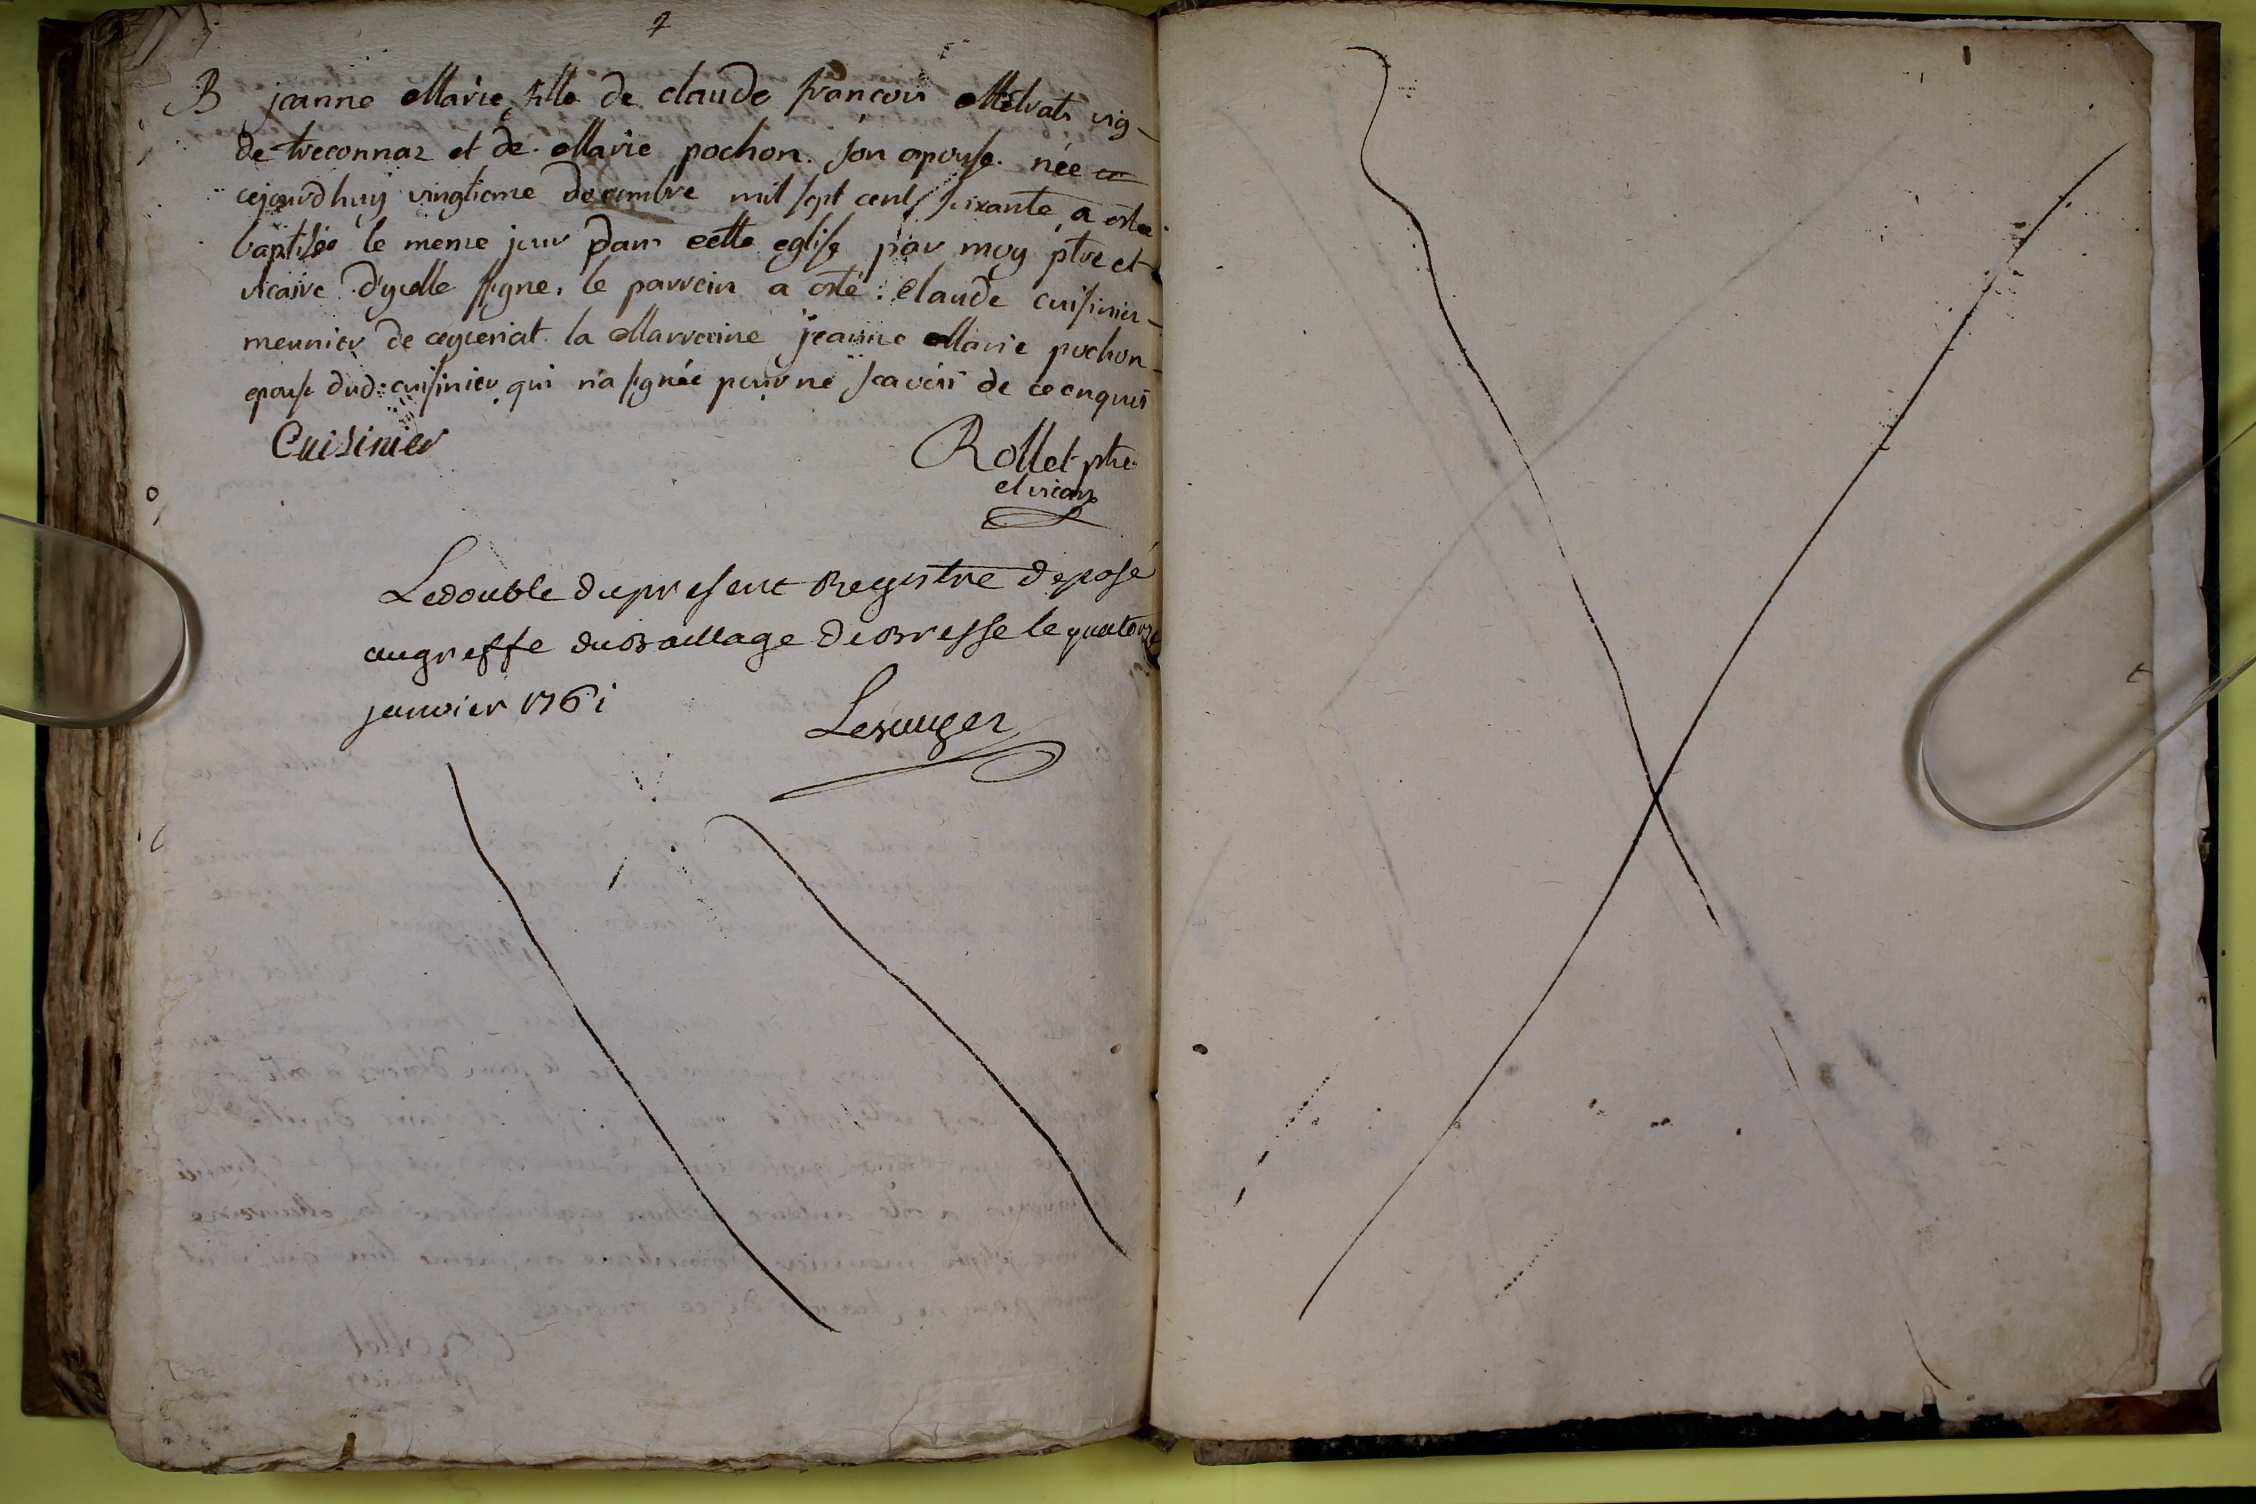 B jeanne Marie fille de claude francois vig-
de treconnaz et de Marie pochon son epouse née
cejourdhuy vingtieme decembre mil sept cent soixante a esté
baptisée le meme jour dans cette eglise par moy ptre et
vicaire d'ycelle signé. le parrein a esté claude cuisinier-
meunier de ceyzeriat la Marreine jeanne Marie pochon-
epouse dud: cuisinier qui n'a signée pour ne scavoir de ce enquis
Cuisinier
Rollet ptre
et vicaire
Ledouble dupresent Registre deposé
augreffe duBaillage deBresse le quatorze
janvier 1761